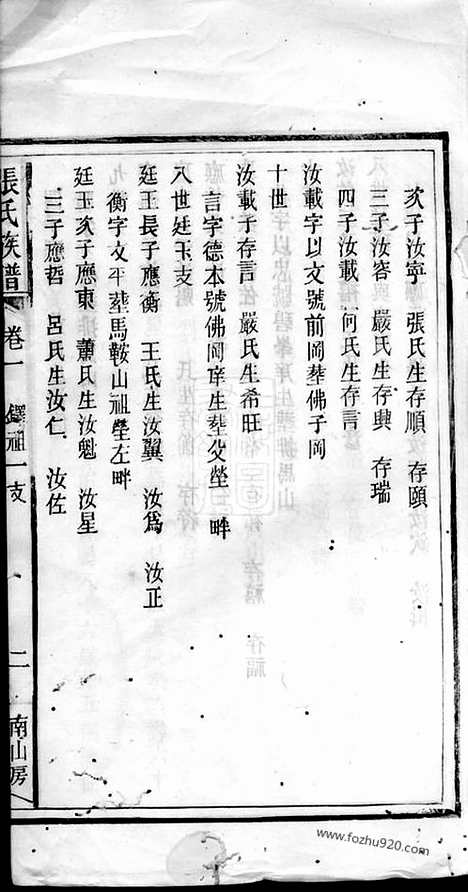 次子汝寧　張氏生存順　存頤
三子汝容　嚴氏生存興　存瑞
四子汝載　何氏生存言
汝載字以文號前岡塟佛子岡
十世
汝載子存言　嚴氏生希旺
言字德本號佛岡庠生塟父塋畔
八世廷玉支
廷玉長子應衡　王氏生汝翼　汝為　汝正
衡字文平塟馬鞍山祖塋左畔
廷玉次子應東　蕭氏生汝魁　汝星
三子應哲　呂氏生汝仁　汝佐
張氏族譜　卷一　鐸祖一支　二　南山房
www.fozhu920.com